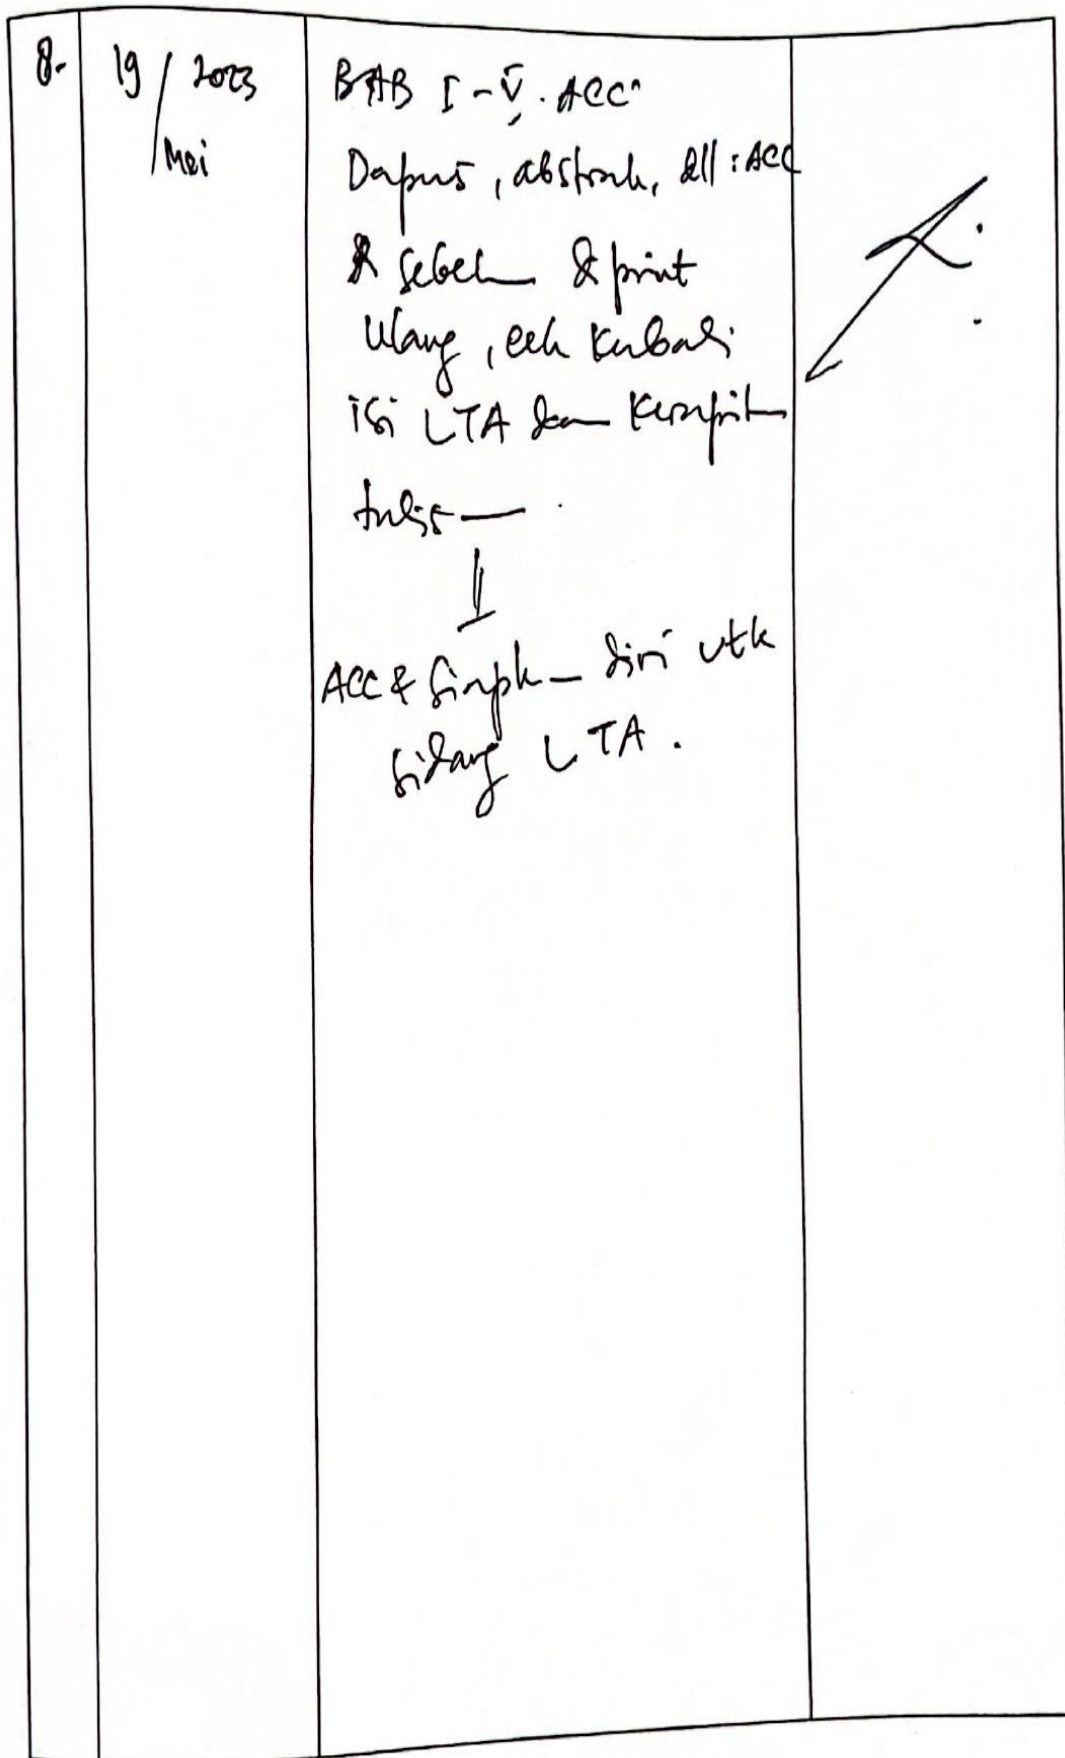 8. 19 / 2023
Mei
BAB I - V. ACC
Dapus, abstrak, dll : ACC
& sebel & print
Ulang, cek kembali
isi LTA dan kerapih
tulis
ACC & siapk diri utk
sidang LTA.